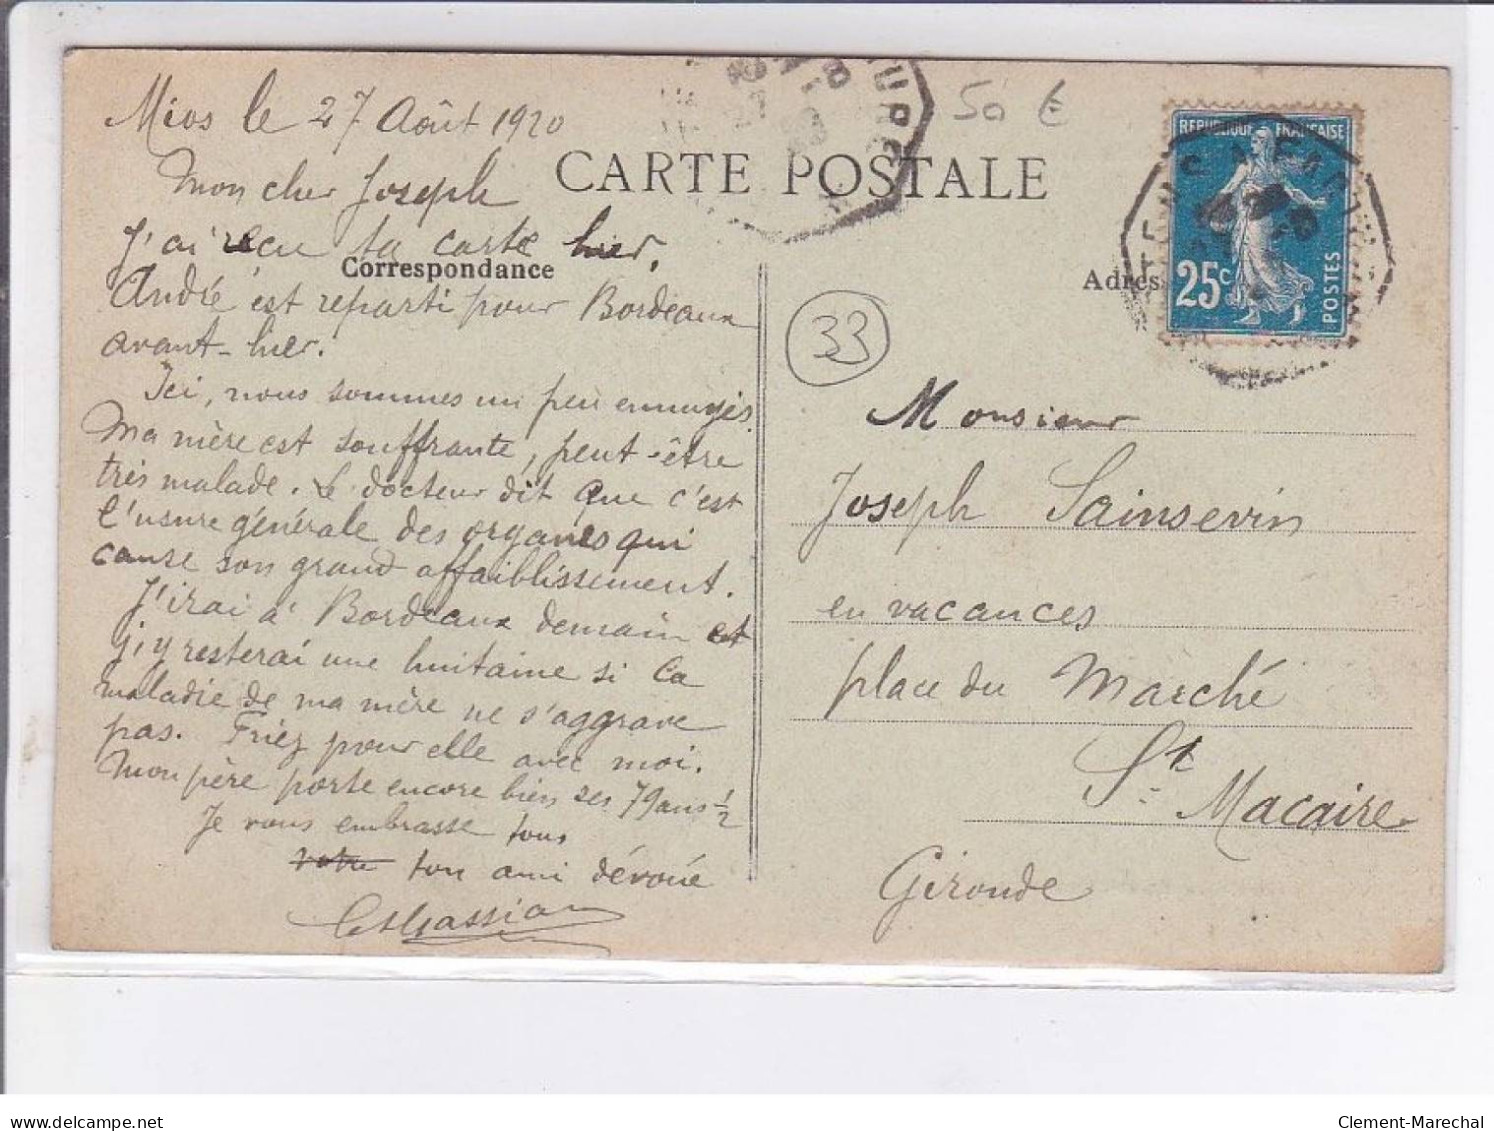 Mios le 27 Août 1920
50 €
CARTE POSTALE
Mon cher Joseph
J'ai reçu ta carte hier,
Correspondance
André est reparti pour Bordeaux
avant-hier.
Ici, nous sommes un peu ennuyés.
Ma mère est souffrante, peut-être
très malade. Le docteur dit que c'est
l'usure générale des organes qui
cause son grand affaiblissement.
J'irai à Bordeaux demain et
j'y resterai une huitaine si la
maladie de ma mère ne s'aggrave
pas. Priez pour elle avec moi.
Mon père porte encore bien ses 79 ans 1/2
Je vous embrasse tous
votre ton ami dévoué
REPUBLIQUE FRANÇAISE
25c
POSTES
Adres
33
Monsieur
Joseph Sainsevin
en vacances
place du Marché
St Macaire
Gironde
delcampe.net
Clement-Marechal